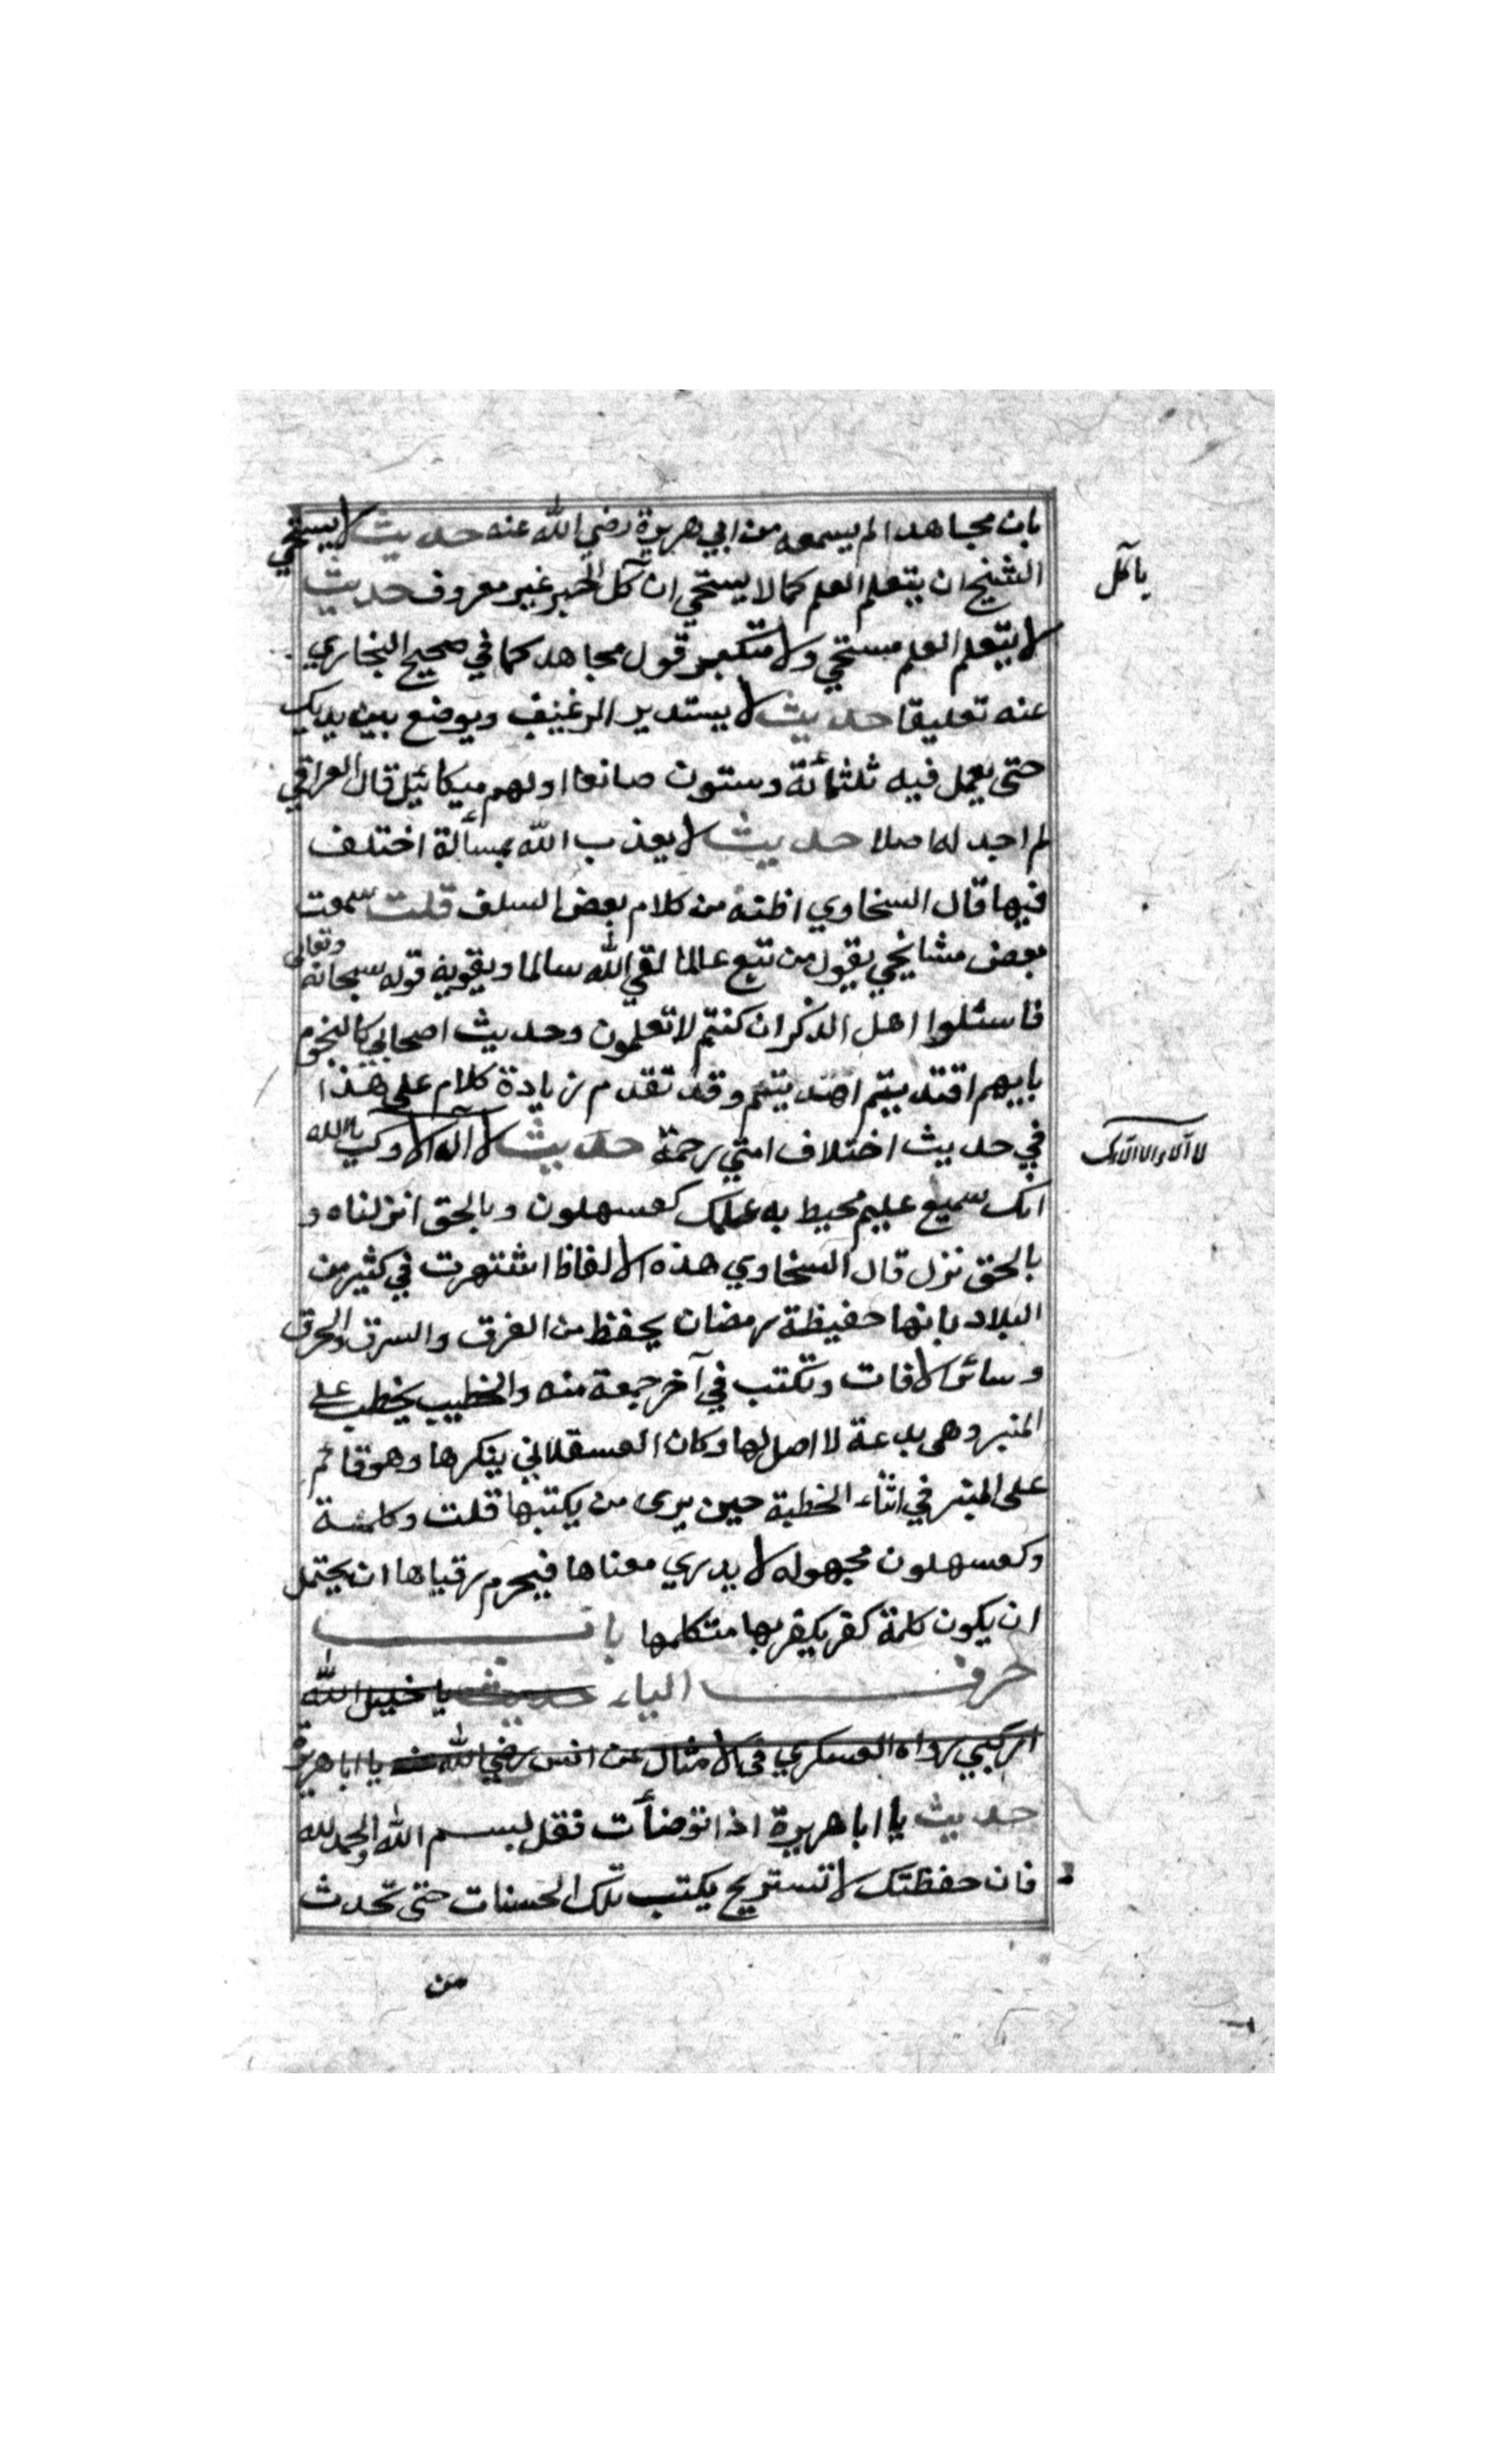 بان مجاهدا لم يسمعه من ابي هريرة رضي الله عنه حديث لا يستحي
الشيخ ان يتعلم العلم كما لا يستحي ان آكل الخبز غير معروف حديث
ياكل
لا يتعلم العلم مستحي ولا متكبر قول مجاهد كما في صحيح البخاري
عنه تعليقا حديث لا يستدير الرغيف ويوضع بين يديك
حتى يعمل فيه ثلثمائة وستون صانعا اولهم ميكائيل قال العراقي
لم اجد له اصلا حديث لا يعذب الله بمسألة اختلف
فيها قال السخاوي اظنه من كلام بعض السلف قلت سمعت
بعض مشايخي يقول من تبع عالما لقي الله سالما ويقويه قوله سبحانه وتعالى
فاسئلوا اهل الذكر ان كنتم لا تعلمون وحديث اصحابي كالنجوم
بايهم اقتديتم اهتديتم وقد تقدم زيادة كلام على هذا
في حديث اختلاف امتي رحمة حديث لا آله الا وكب ياالله
انك سميع عليم محيط به علمك كعسهلون وبالحق انزلناه و
بالحق نزل قال السخاوي هذه الالفاظ اشتهرت في كثير من
البلاد بانها حفيظة رمضان يحفظ من الغرق والسرق والحرق
وسائر الافات وتكتب في آخر جمعة منه والخطيب يخطب على
المنبر وهي بدعة لا اصل لها وكان العسقلاني ينكرها وهو قائم
على المنبر في اثناء الخطبة حين يرى من يكتبها قلت وكلمة
وكعسهلون مجهوله لا يدري معناها فيحرم رقياها ان يحتمل
ان يكون كلمة كفر يكفر بها متكلمها باب
حرف الياء حديث يا خليل الله
اركبي رواه العسكري في الامثال عن انس رضي الله عنه يا ابا هريرة
حديث يا ابا هريرة اذا توضأت فقل بسم الله والحمد لله
فان حفظتك لا تستريح يكتب تلك الحسنات حتى تحدث
من